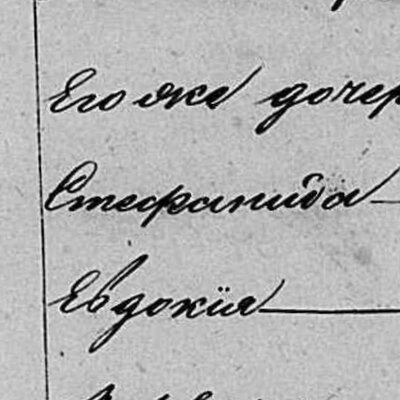 Его же дочер
Стефанида
Евдокія